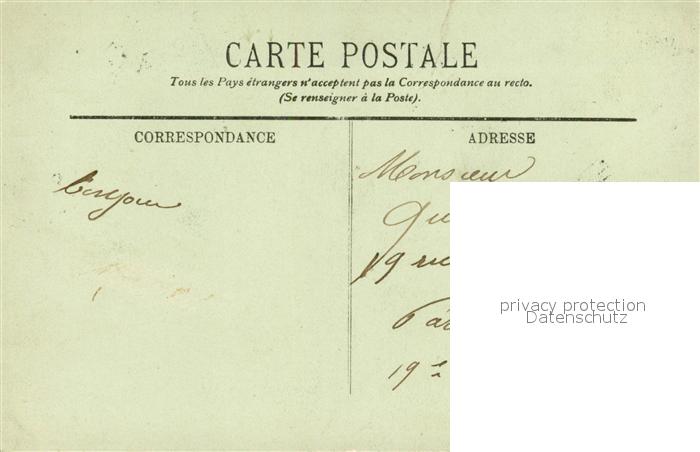 CARTE POSTALE
Tous les Pays étrangers n'acceptent pas la Correspondance au recto.
(Se renseigner à la Poste).
CORRESPONDANCE
ADRESSE
Bonjour
Monsieur
Qu
19 rue
Par
19e
privacy protection
Datenschutz